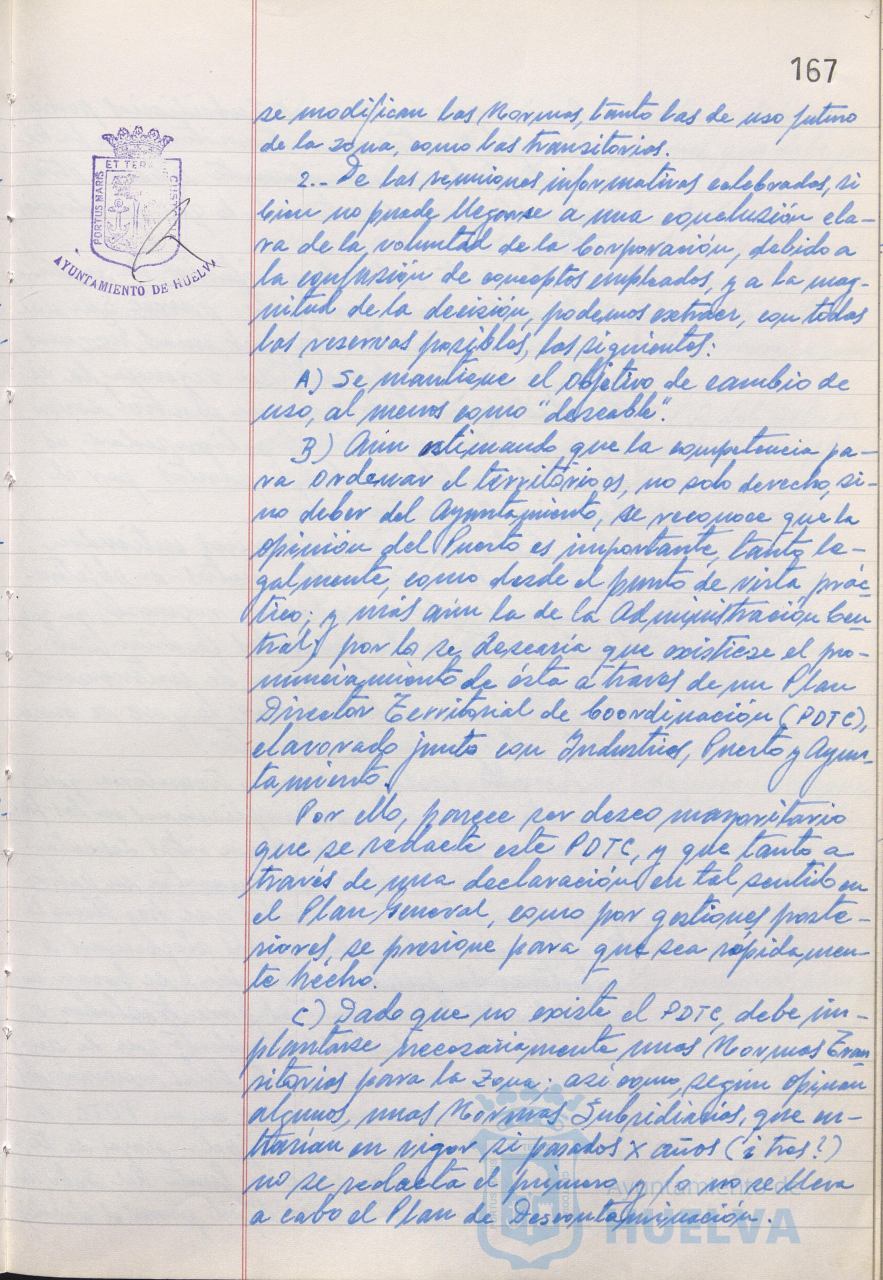 167
se modifican las Normas, tanto las de uso futuro
de la zona, como las transitorias.
2.- De las reuniones informativas celebradas, si
bien no puede llegarse a una conclusión cla-
ra de la voluntad de la Corporación, debido a
la confusión de conceptos empleados, y a la mag-
nitud de la decisión, podemos extraer, con todas
las reservas posibles, las siguientes:
A) Se mantiene el objetivo de cambio de
uso, al menos como "deseable".
B) Aún estimando que la competencia pa-
ra ordenar el territorio es, no solo derecho, si-
no deber del Ayuntamiento, se reconoce que la
opinión del Puerto es importante, tanto le-
galmente, como desde el punto de vista prác-
tico; y más aún la de la Administración Cen
tral; por lo se desearía que existiese el pro-
nunciamiento de ésta a traves de un Plan
Director Territorial de Coordinación (PDTC),
elavorado junto con Industrias, Puerto y Ayun-
tamiento.
Por ello, parece ser deseo mayoritario
que se redacte este PDTC, y que tanto a
través de una declaración en tal sentido en
el Plan General, como por gestiones poste-
riores, se presione para que sea rápidamen-
te hecho.
C) Dado que no existe el PDTC, debe im-
plantarse necesariamente unas Normas Tran
sitorias para la Zona; así como, según opinan
algunos, unas Normas Subsidiarias, que en-
trarían en vigor si pasados x años (¿tres?)
no se redacta el primero y/o no se lleva
a cabo el Plan de Descontaminación.
PORTUS MARIS ET TERRAE CUSTODIA
AYUNTAMIENTO DE HUELVA
Ayuntamiento de
HUELVA